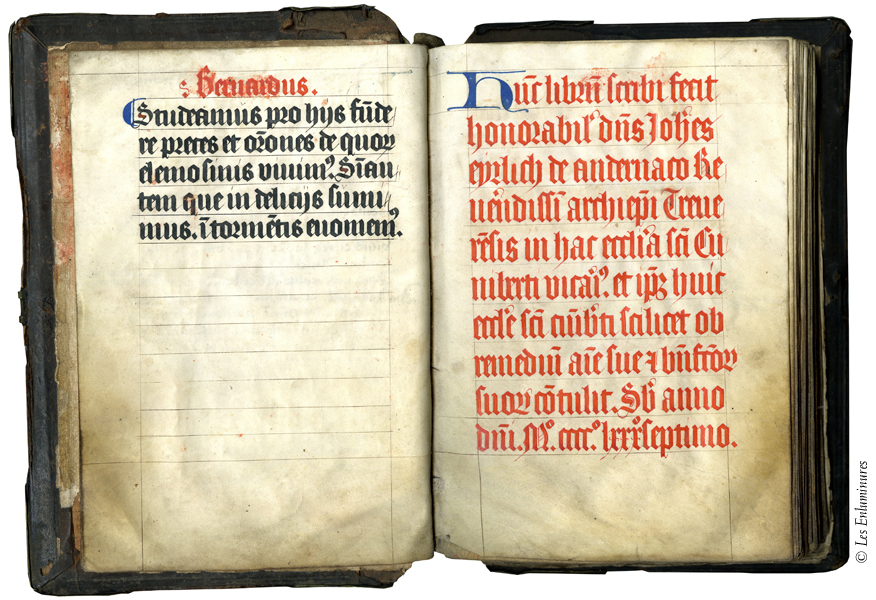 S. Bernardus.
Studeamus pro hijs fūde
re preces et or̄ones de quoꝝ
elemosinis viuim⁹. Sīau
tem que in delicijs sumi
mus. ī tormētis euomem⁹.
Hūc librū scribi fecit
honorabil' dn̄s Joh̄es
eyrlich de andernaco Re
uēndissī archiepī Treue
rēsis in hac eccl'ia sc̄i Cu
niberti vicari⁹. et ip̄ꝫ huic
eccl'e sc̄i cūib'ti scilicet ob
remediū aīe sue ⁊ bn̄fc̄oꝝ
suoꝝ cōtulit. Sb' anno
dn̄i. Mº. ccccº. lxxxºseptimo.
© Les Enluminures